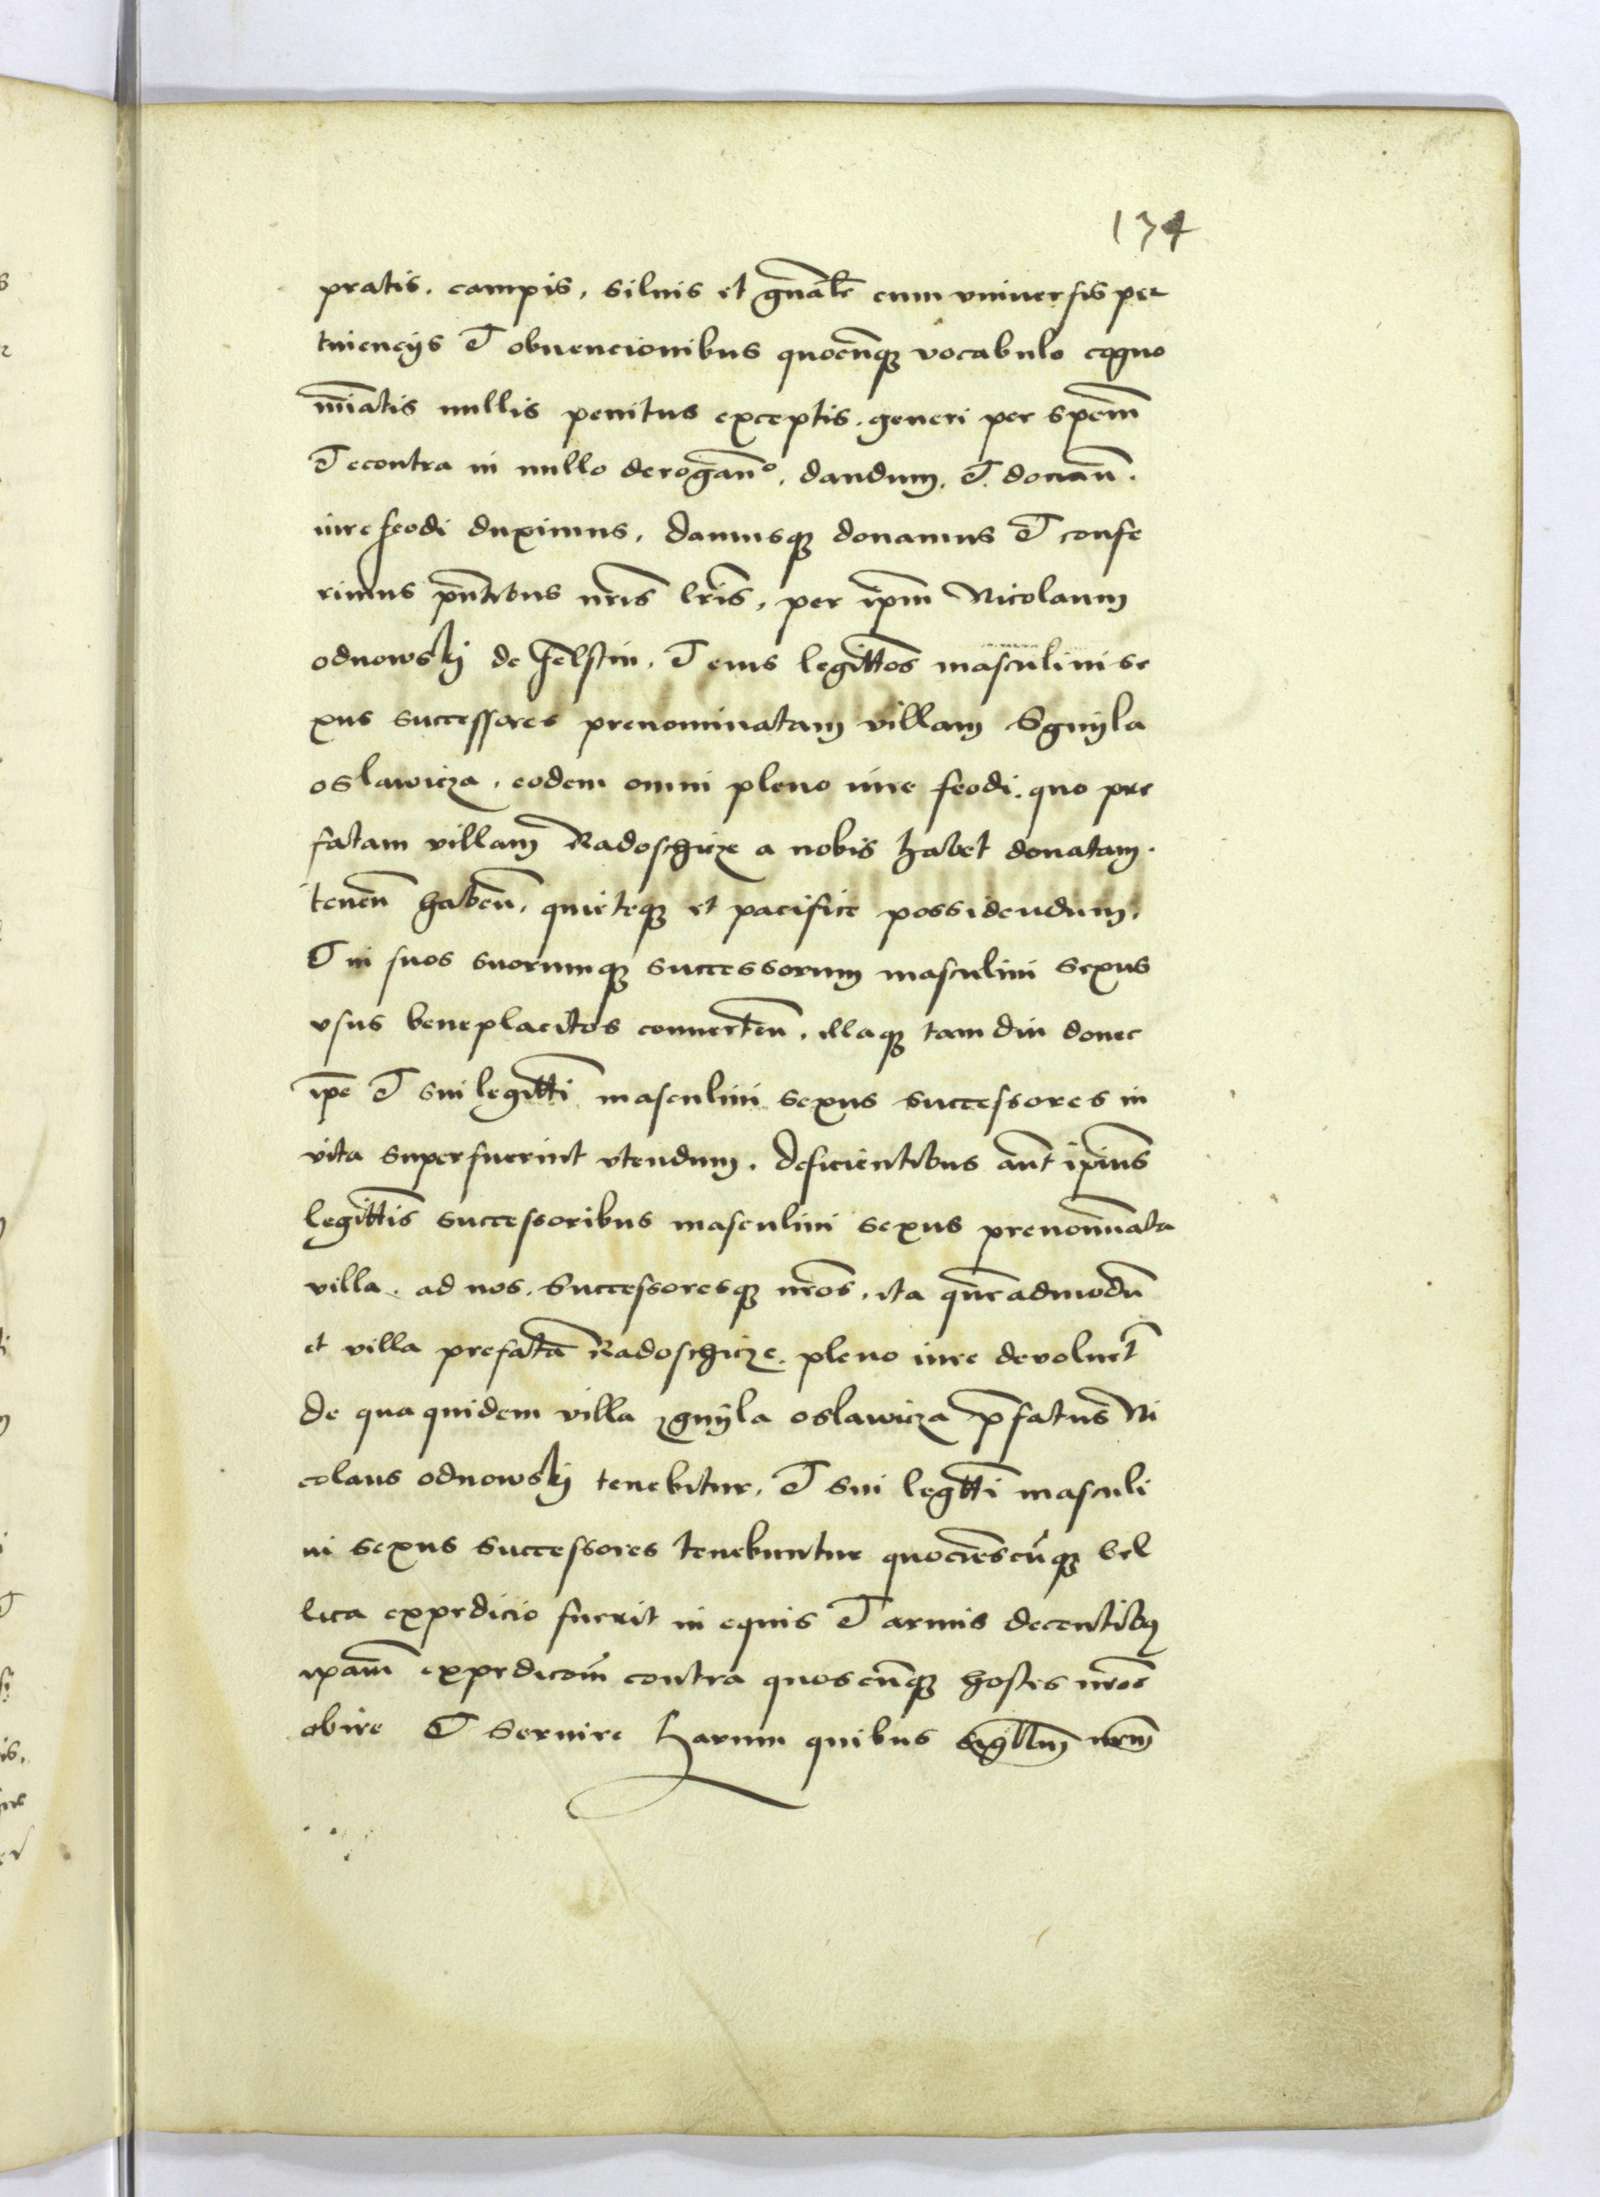 134
pratis. campis, siluis et gn̄alr̄ cum vniuersis per
tinencijs Et obuencionibus quocūq3 vocabulo cogno
mīatis nullis penitus exceptis. generi per spēm
Et econtra in nullo derogan̄º. dandum. Et. donan̄.
iure feodi duximus, damusq3 donamus Et confe
rimus pn̄tibus nr̄is lr̄is, per ip̄m Nicolaum
odnowskj de felstin. Et eius legitt̄os masculini se
xus successores prenominatam villam Sgnyla
oslawicza. eodem omni pleno iure feodi. quo pre
fatam villam Radoschicze a nobis habet donatam.
tenen̄ haben̄. quieteq3 et pacifice possidendum.
Et in suos suorumq3 successorum masculini sexus
vsus beneplacitos conuerten̄. illaq3 tam diu donec
ip̄e Et sui legitt̄i masculini sexus successores in
vita superfuerint vtendum. deficientibus aūt ip̄ius
legitt̄is successoribus masculini sexus prenoīnata
villa. ad nos. Successoresq3 nr̄os. ita quēadmodū
et villa prefata Radoschicze. pleno iure deuoluet̄
de qua quidem villa zgnyla oslawicza p̄fatus Ni
colaus odnowskj tenebitur. Et sui legtt̄i masculi
ni sexus successores tenebuntur quociescūq3 bel
lica expedicio fuerit in equis Et armis decentibus
ip̄am expedicōm̄ contra quoscūq3 hostes nr̄os
obire Et seruire harum quibus sigillm̄ nr̄m